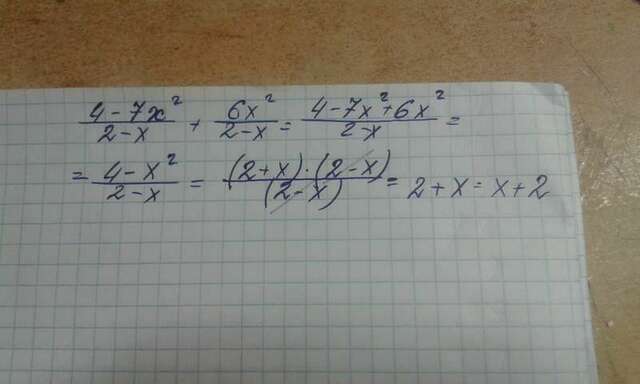 (4-7x²)/(2-x) + (6x²)/(2-x) = (4-7x²+6x²)/(2-x) =
= (4-x²)/(2-x) = ((2+x)·(2-x))/((2-x)) = 2+x = x+2